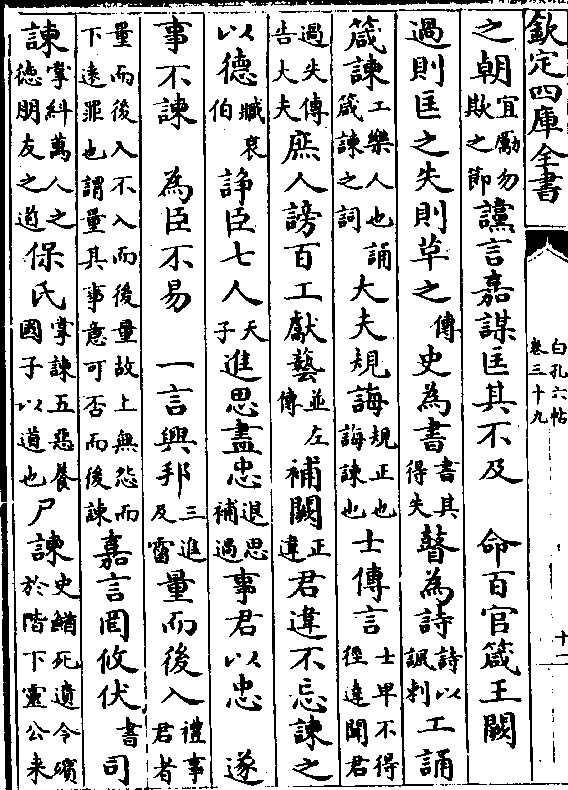 欽定四庫全書
白孔六帖
卷三十九
十二
之朝宜勵勿欺之節讜言嘉謀匡其不及　命百官箴王闕
過則匡之失則革之傳史為書書其得失瞽為詩詩以諷刺工誦
箴諫工樂人也誦箴諫之詞大夫規誨規正也誨諫也士傳言士卑不得徑達聞君
過失傳告大夫庶人謗百工獻藝並左傳補闕正違君違不忘諫之
以德臧哀伯諍臣七人天子進思盡忠退思補過事君以忠　遂
事不諫　為臣不易　一言興邦三進及霤量而後入禮事君者
量而後入不入而後量故上無怨而下遠罪也謂量其事意可否而後諫嘉言罔攸伏書司
諫掌糾萬人之德朋友之道保氏掌諫五惡養國子以道也尸諫史鰌死遺令殯於階下靈公来